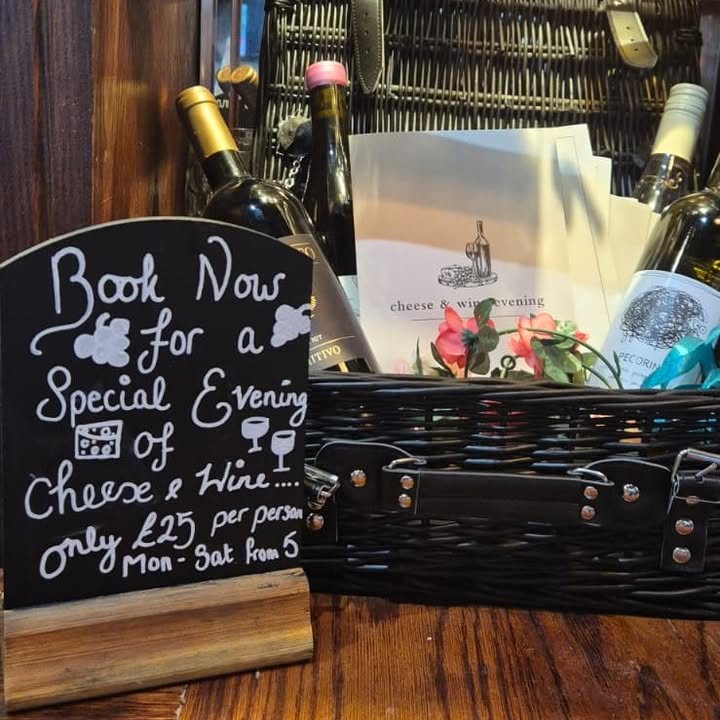 Book Now
for a
Special Evening
of
Cheese & Wine....
only £25 per person
Mon - Sat from 5
cheese & wine evening